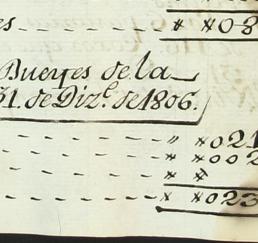 es - - - - - - " *08
Bueyes de la
31. de Diz.e de 1806.
- - - - - " *021
- - - - - * *002
- - - - - * *
* *023